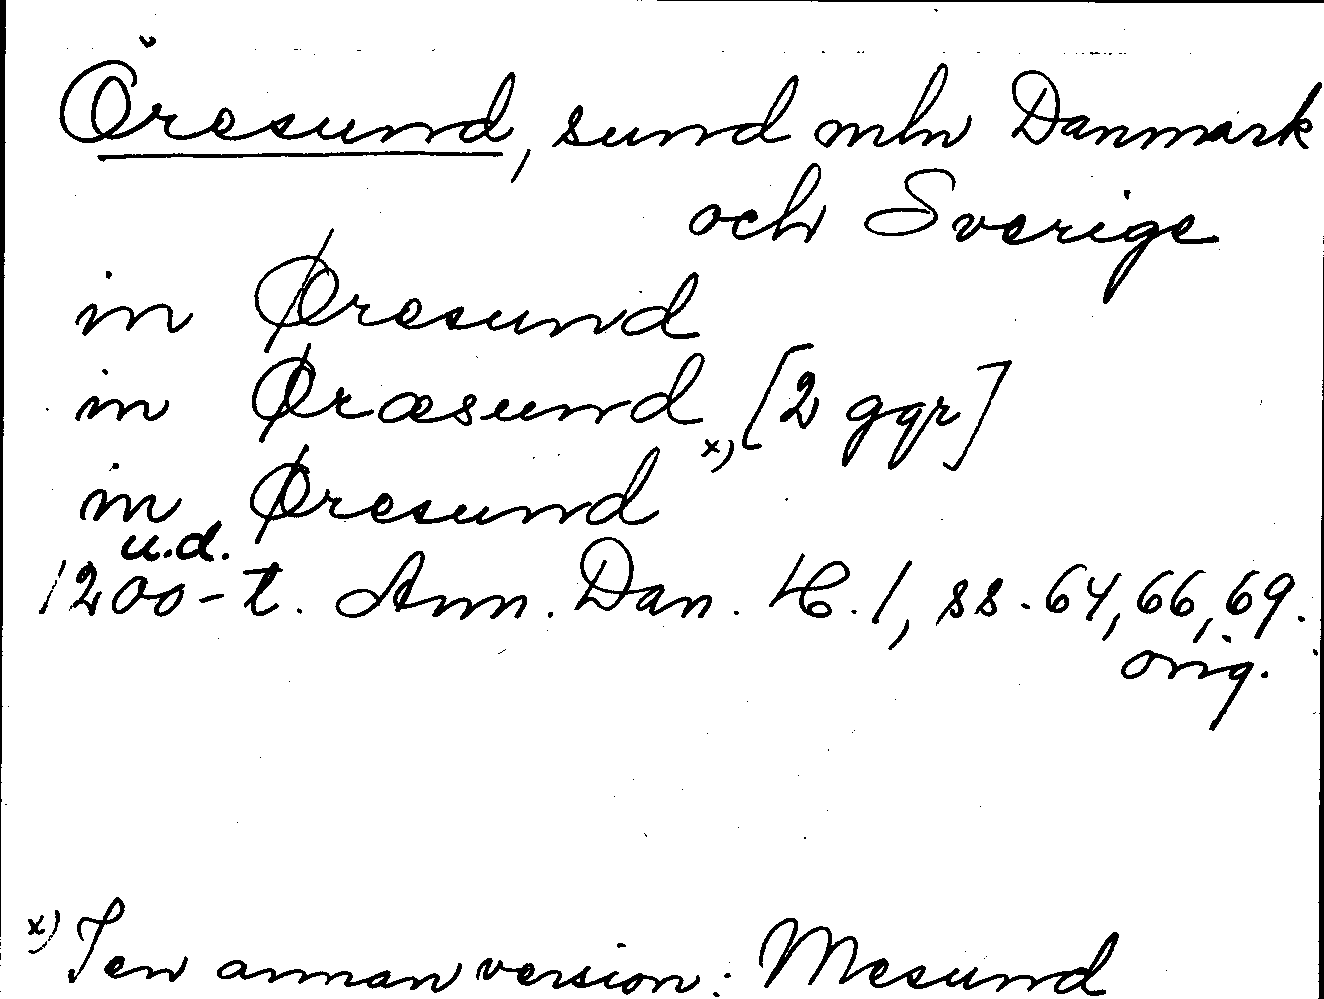 Öresund, sund mln Danmark
och Sverige
in Øresund
in Øræsund x) [2 ggr]
in Øresund
u.d.
1200-t. Ann. Dan. H. 1, ss. 64, 66, 69.
orig.
x) I en annan version: Mesund